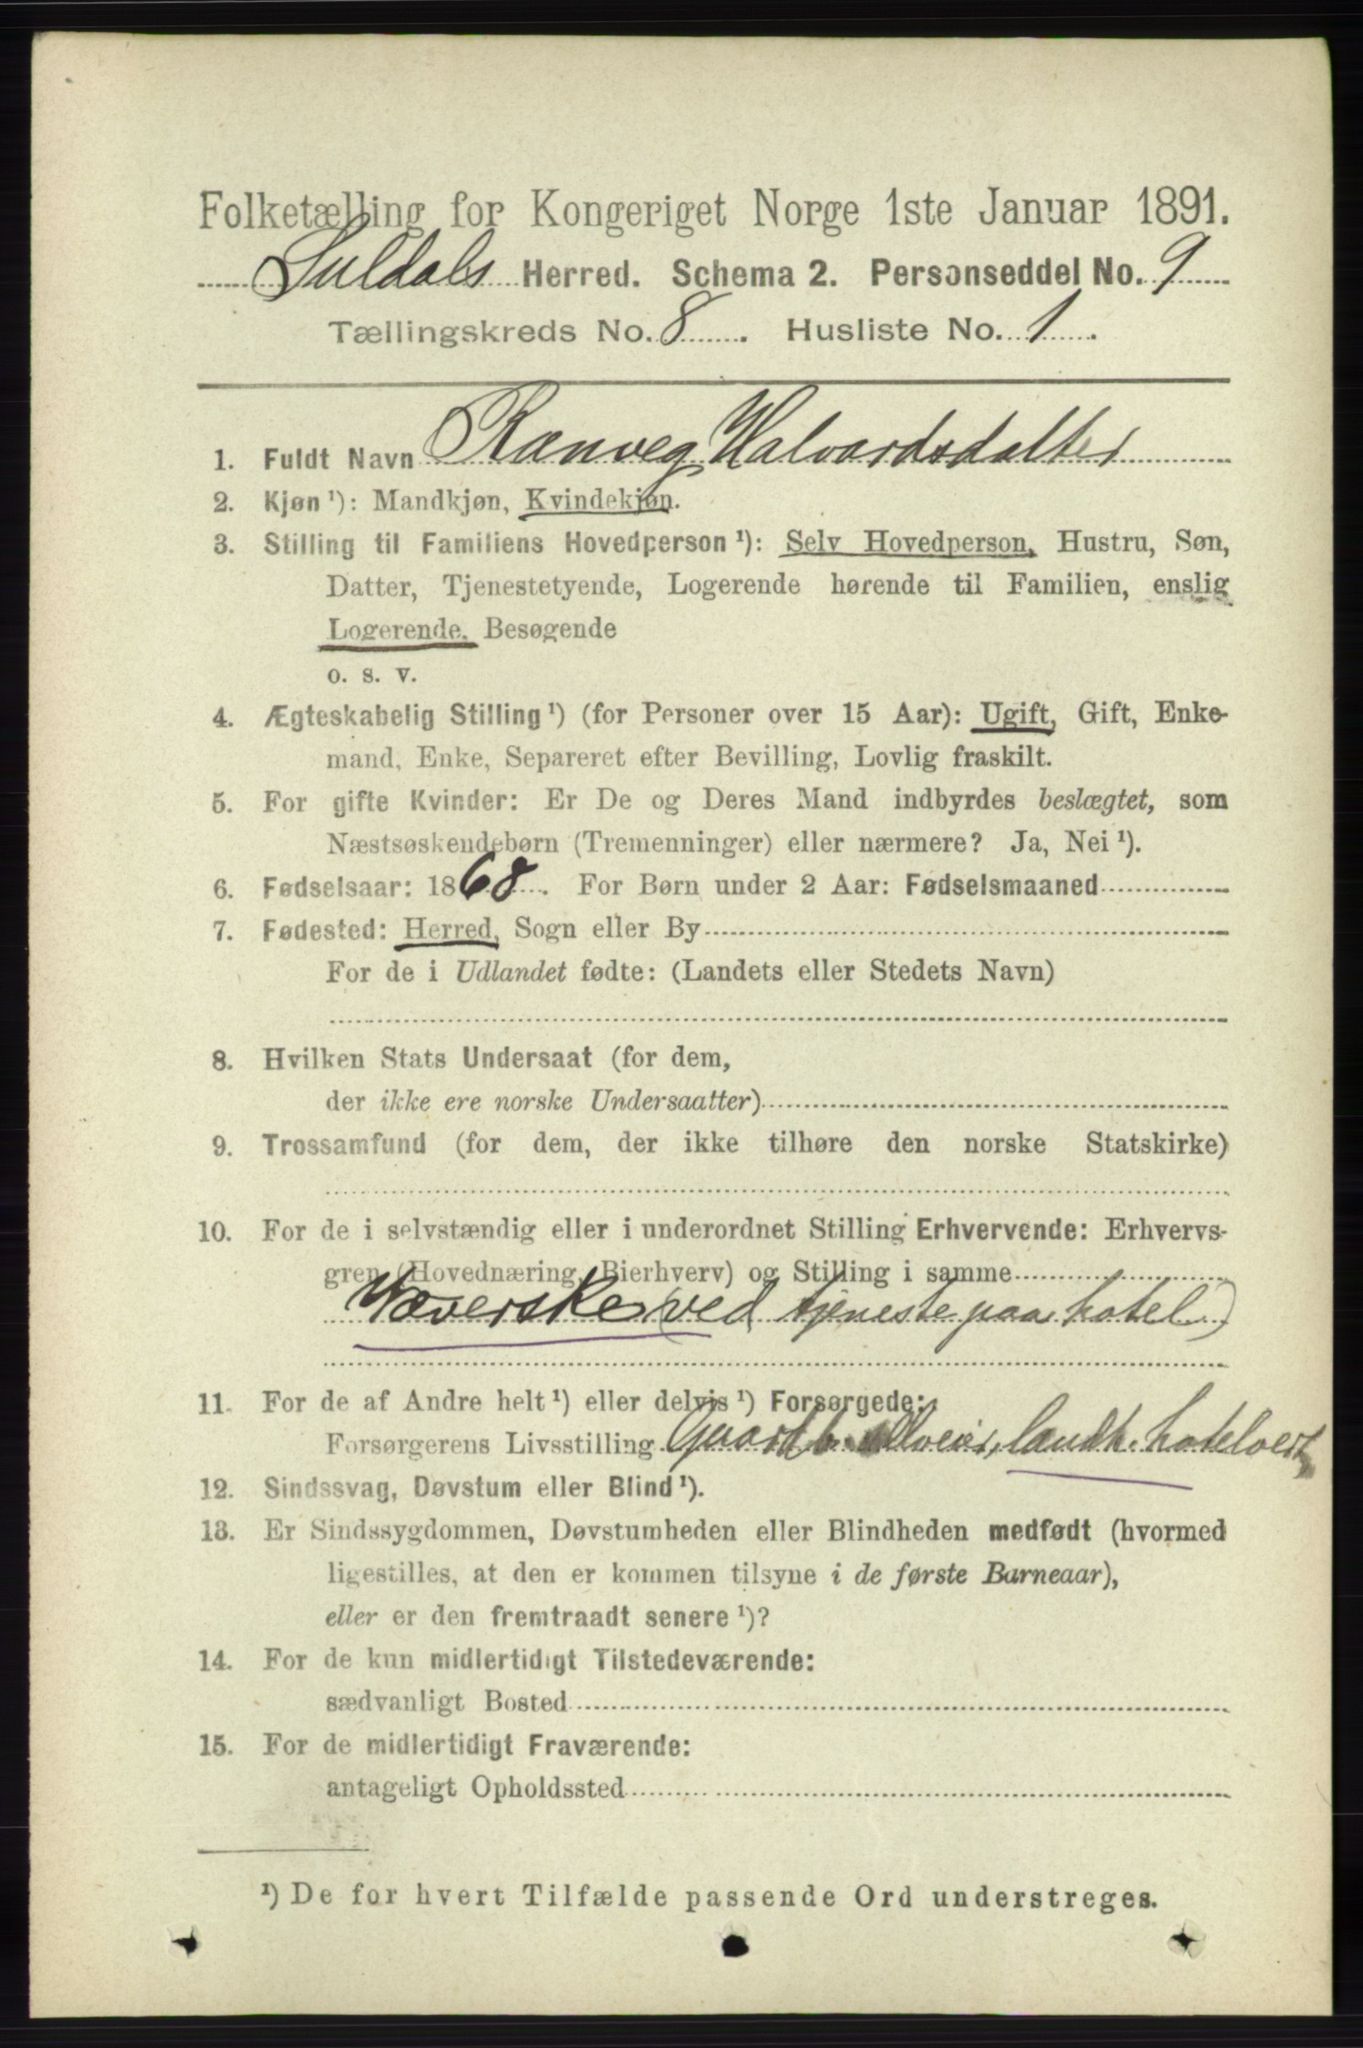 Folketælling for Kongeriget Norge 1ste Januar 1891.
Suldals Herred. Schema 2. Personseddel No. 9
Tællingskreds No. 8. Husliste No. 1.
1. Fuldt Navn Ranveg Halvardsdatter
2. Kjøn ¹): Mandkjøn, Kvindekjøn.
3. Stilling til Familiens Hovedperson ¹): Selv Hovedperson, Hustru, Søn,
Datter, Tjenestetyende, Logerende hørende til Familien, enslig
Logerende, Besøgende
o. s. v.
4. Ægteskabelig Stilling ¹) (for Personer over 15 Aar): Ugift, Gift, Enke-
mand, Enke, Separeret efter Bevilling, Lovlig fraskilt.
5. For gifte Kvinder: Er De og Deres Mand indbyrdes beslægtet, som
Næstsøskendebørn (Tremenninger) eller nærmere? Ja, Nei ¹).
6. Fødselsaar: 1868. For Børn under 2 Aar: Fødselsmaaned
7. Fødested: Herred, Sogn eller By
For de i Udlandet fødte: (Landets eller Stedets Navn)
8. Hvilken Stats Undersaat (for dem,
der ikke ere norske Undersaatter)
9. Trossamfund (for dem, der ikke tilhøre den norske Statskirke)
10. For de i selvstændig eller i underordnet Stilling Erhvervende: Erhvervs-
gren (Hovednæring, Bierhverv) og Stilling i samme
Væverske (ved tjeneste paa hotel)
11. For de af Andre helt ¹) eller delvis ¹) Forsørgede:
Forsørgerens Livsstilling Gaardb. landh. hotelvert
12. Sindssvag, Døvstum eller Blind ¹).
13. Er Sindssygdommen, Døvstumheden eller Blindheden medfødt (hvormed
ligestilles, at den er kommen tilsyne i de første Barneaar),
eller er den fremtraadt senere ¹)?
14. For de kun midlertidigt Tilstedeværende:
sædvanligt Bosted
15. For de midlertidigt Fraværende:
antageligt Opholdssted
¹) De for hvert Tilfælde passende Ord understreges.